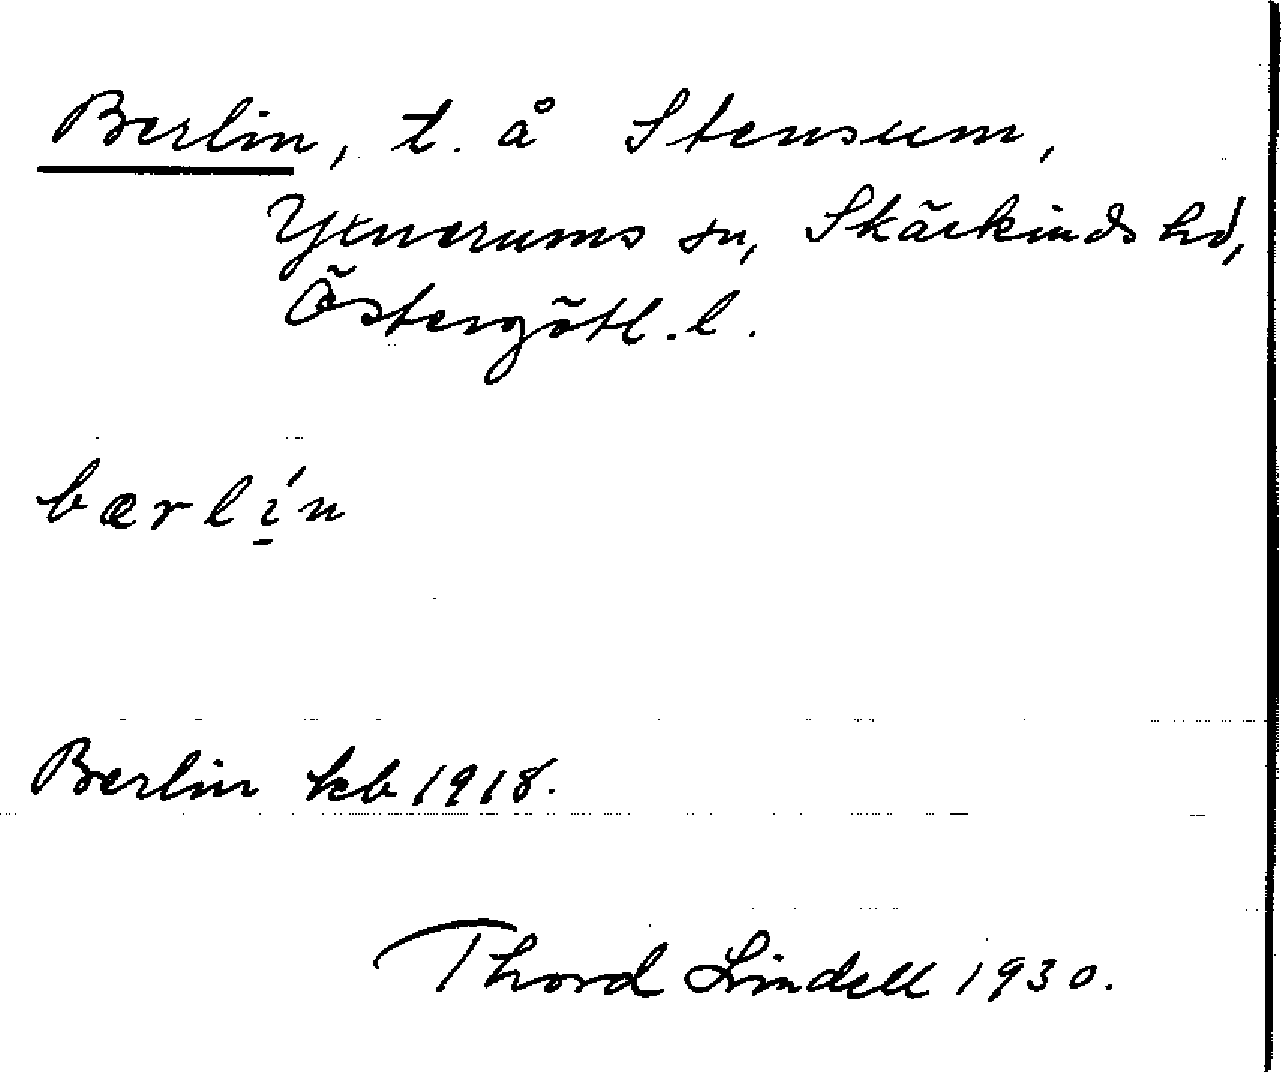 Berlin, t. å Stensum,
Yxnerums sn, Skärkinds hd,
Östergötl. l.
bærlín
Berlin kb 1918.
Thord Lindell 1930.